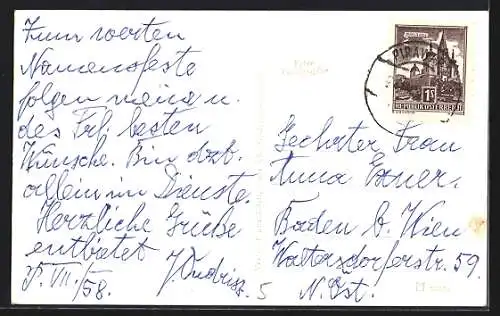 Zum werten
Namensfeste
folgen meine u.
des Frl. besten
Wünsche. Bin dzt.
allein im Dienste.
Herzliche Grüße
entbietet
/58.
Echte
Photographie
PIRAW
1S
REPUBLIK ÖSTERREICH
Geehrter Frau
Anna Exner.
Baden b. Wien
Wattersdorferstr. 59.
N. Öst.
5